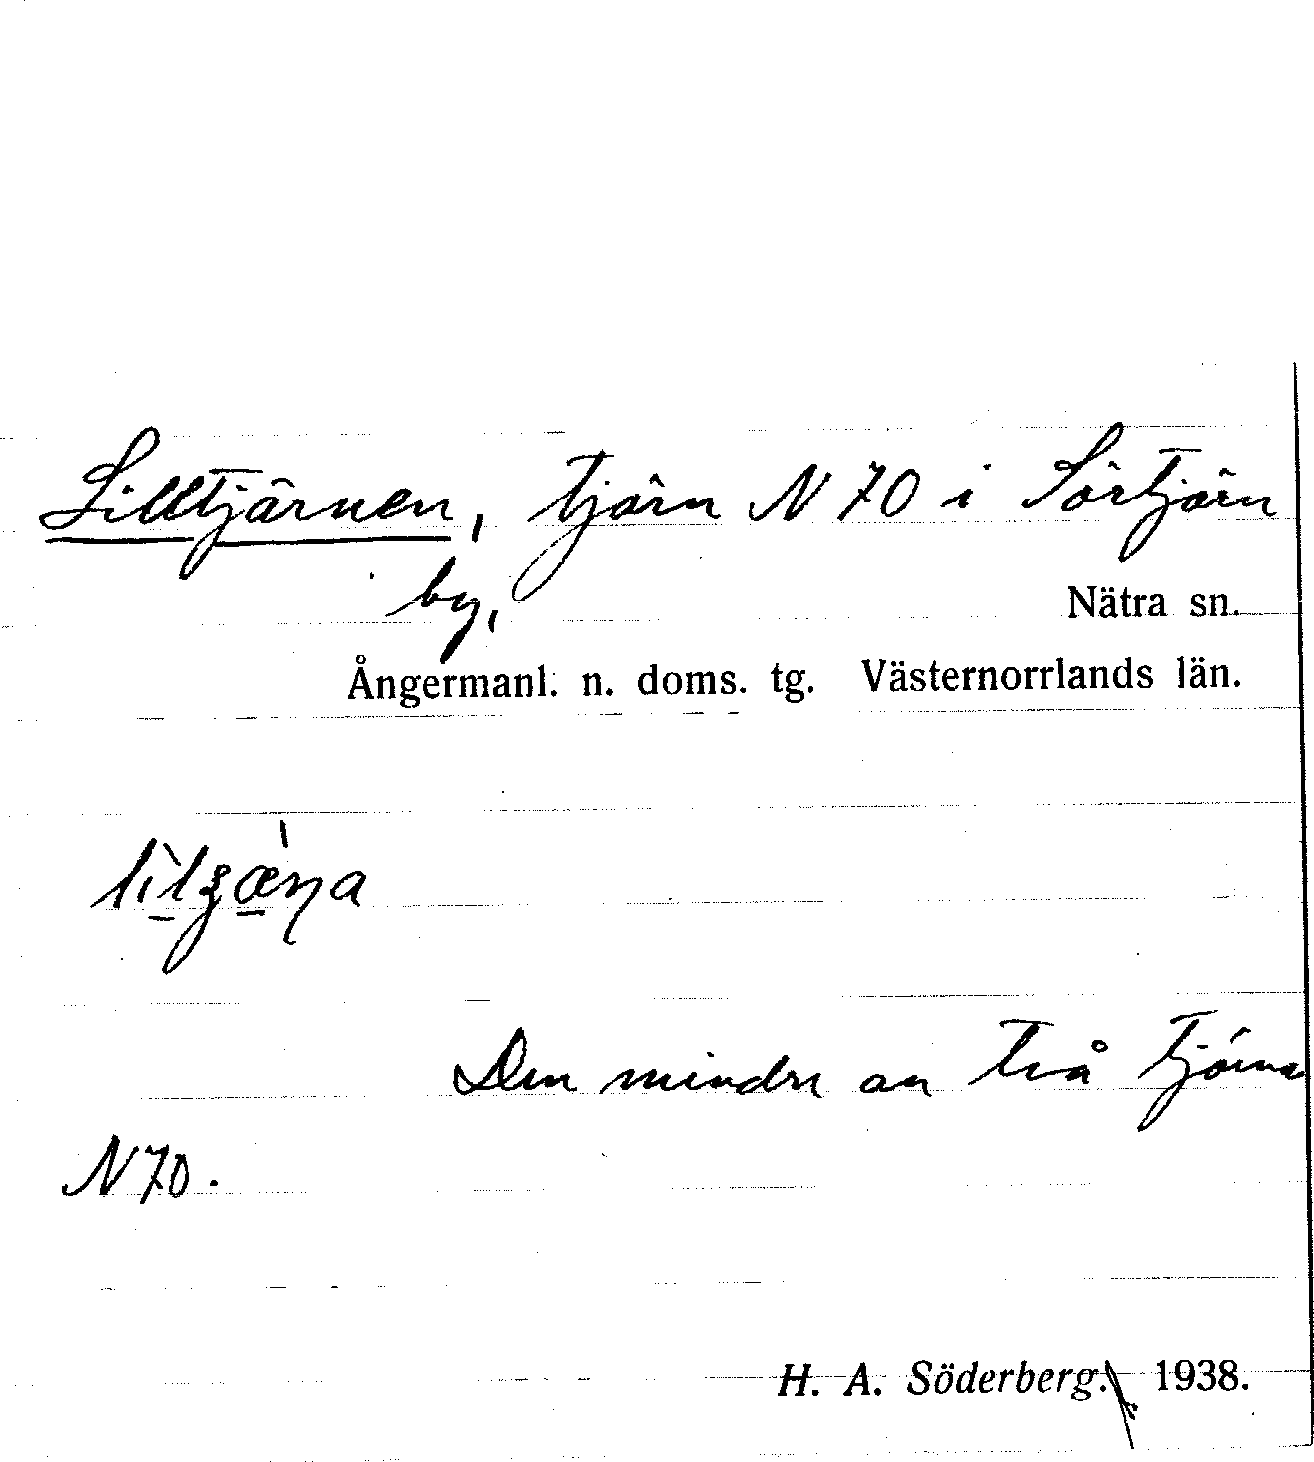 Lilltjärnen, tjärn N 70 i Sörtjärn
by,
Nätra sn.
Ångermanl. n. doms. tg. Västernorrlands län.
Den mindre av två tjärna
N 70.
H. A. Söderberg. 1938.